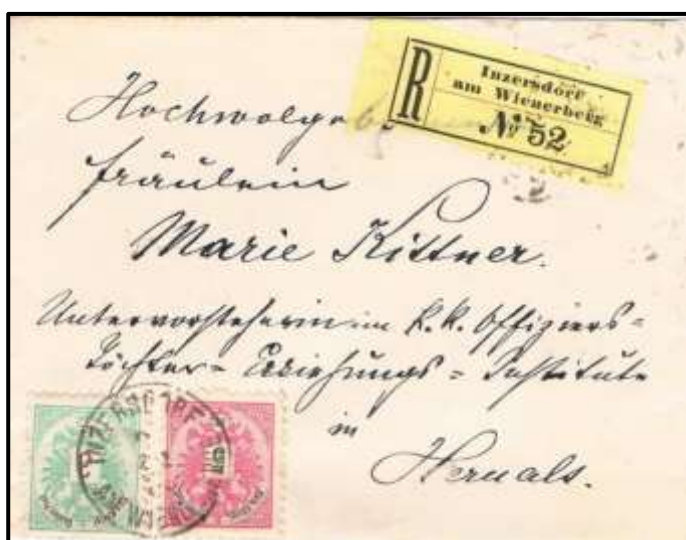 R
Inzersdorf
am Wienerberg
№ 52
Hochwolge
Fräulein
Marie Kittner.
Untervorsteherin im k.k. Offiziers=
Töchter= Erziehungs= Institute
in
Hernals.
INZERSDORF
AM WIENER